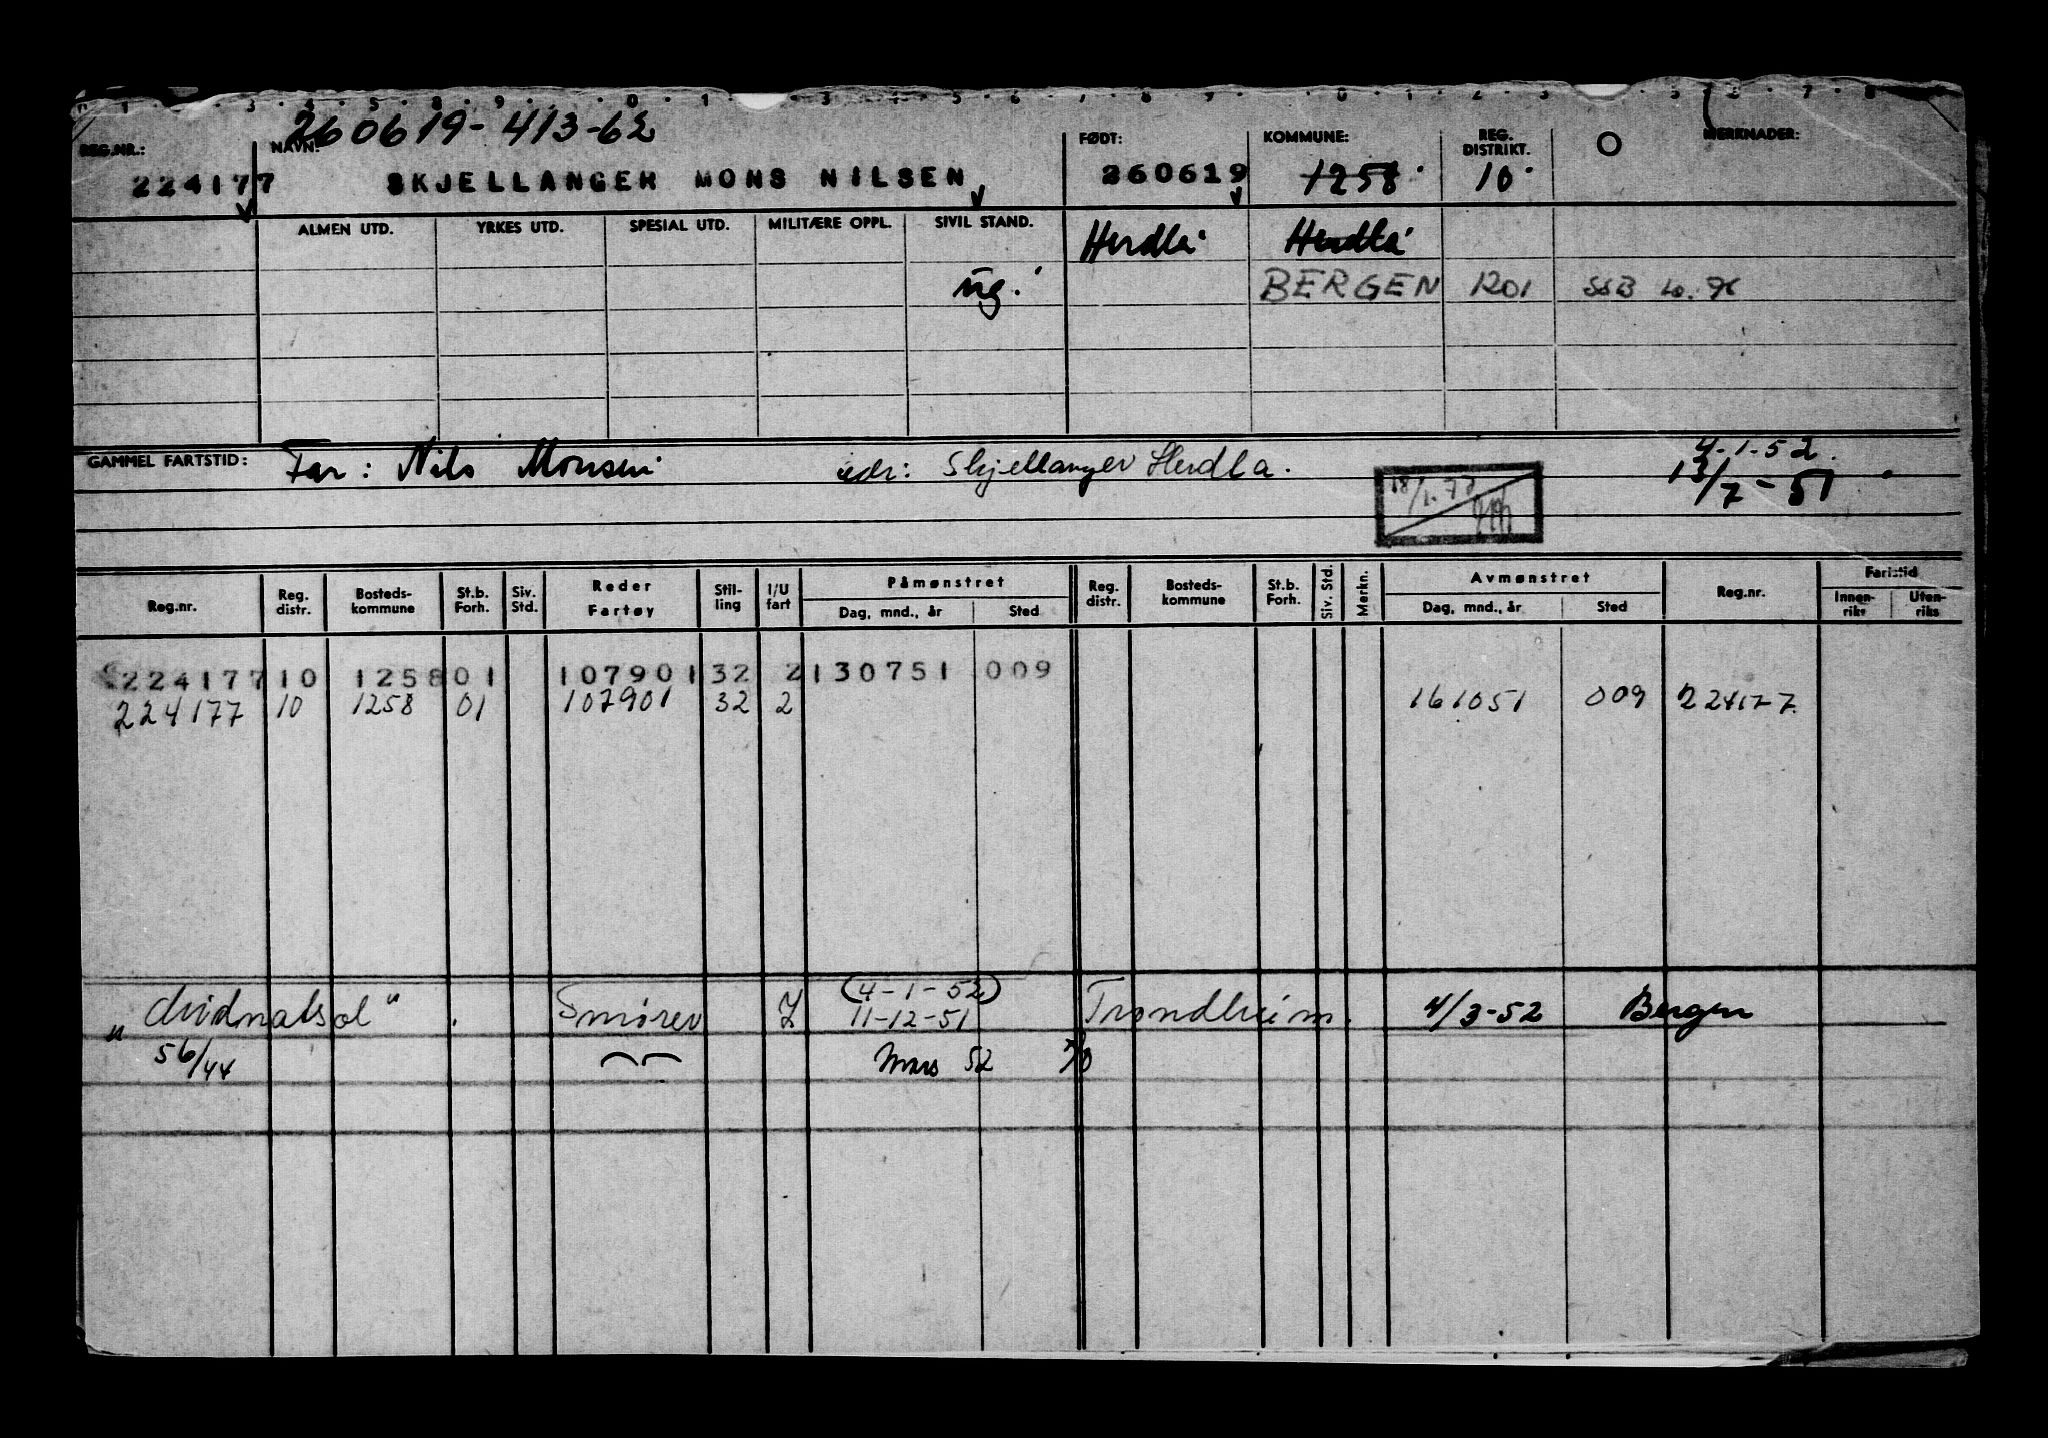 260619-413-62
REG.NR.: NAVN: FØDT: KOMMUNE: REG. DISTRIKT. MERKNADER:
224177 SKJELLANGER MONS NILSEN 260619 1258 10
ALMEN UTD. YRKES UTD. SPESIAL UTD. MILITÆRE OPPL. SIVIL STAND. Herdla Herdla
ug. BERGEN 1201 SSB
GAMMEL FARTSTID: Far: Nils Monsen adr: Skjellanger Herdla. 4-1-52.
13/7-51
18/1.77
Reg.nr. Reg. distr. Bosteds-kommune St.b. Forh. Siv. Std. Reder Fartøy Stil-ling I/U fart Påmønstret Dag, mnd., år Sted Reg. distr. Bosteds-kommune St.b. Forh. Siv. Std. Merkn. Avmønstret Dag, mnd., år Sted Reg.nr. Fartstid Innen-riks Uten-riks
224177 10 1258 01 107901 32 2 130751 009
224177 10 1258 01 107901 32 2 161051 009 224177
(4-1-52)
"Midnatsol". Smører 11-12-51 Trondheim. 4/3-52 Bergen
" 56/44 Mars 52